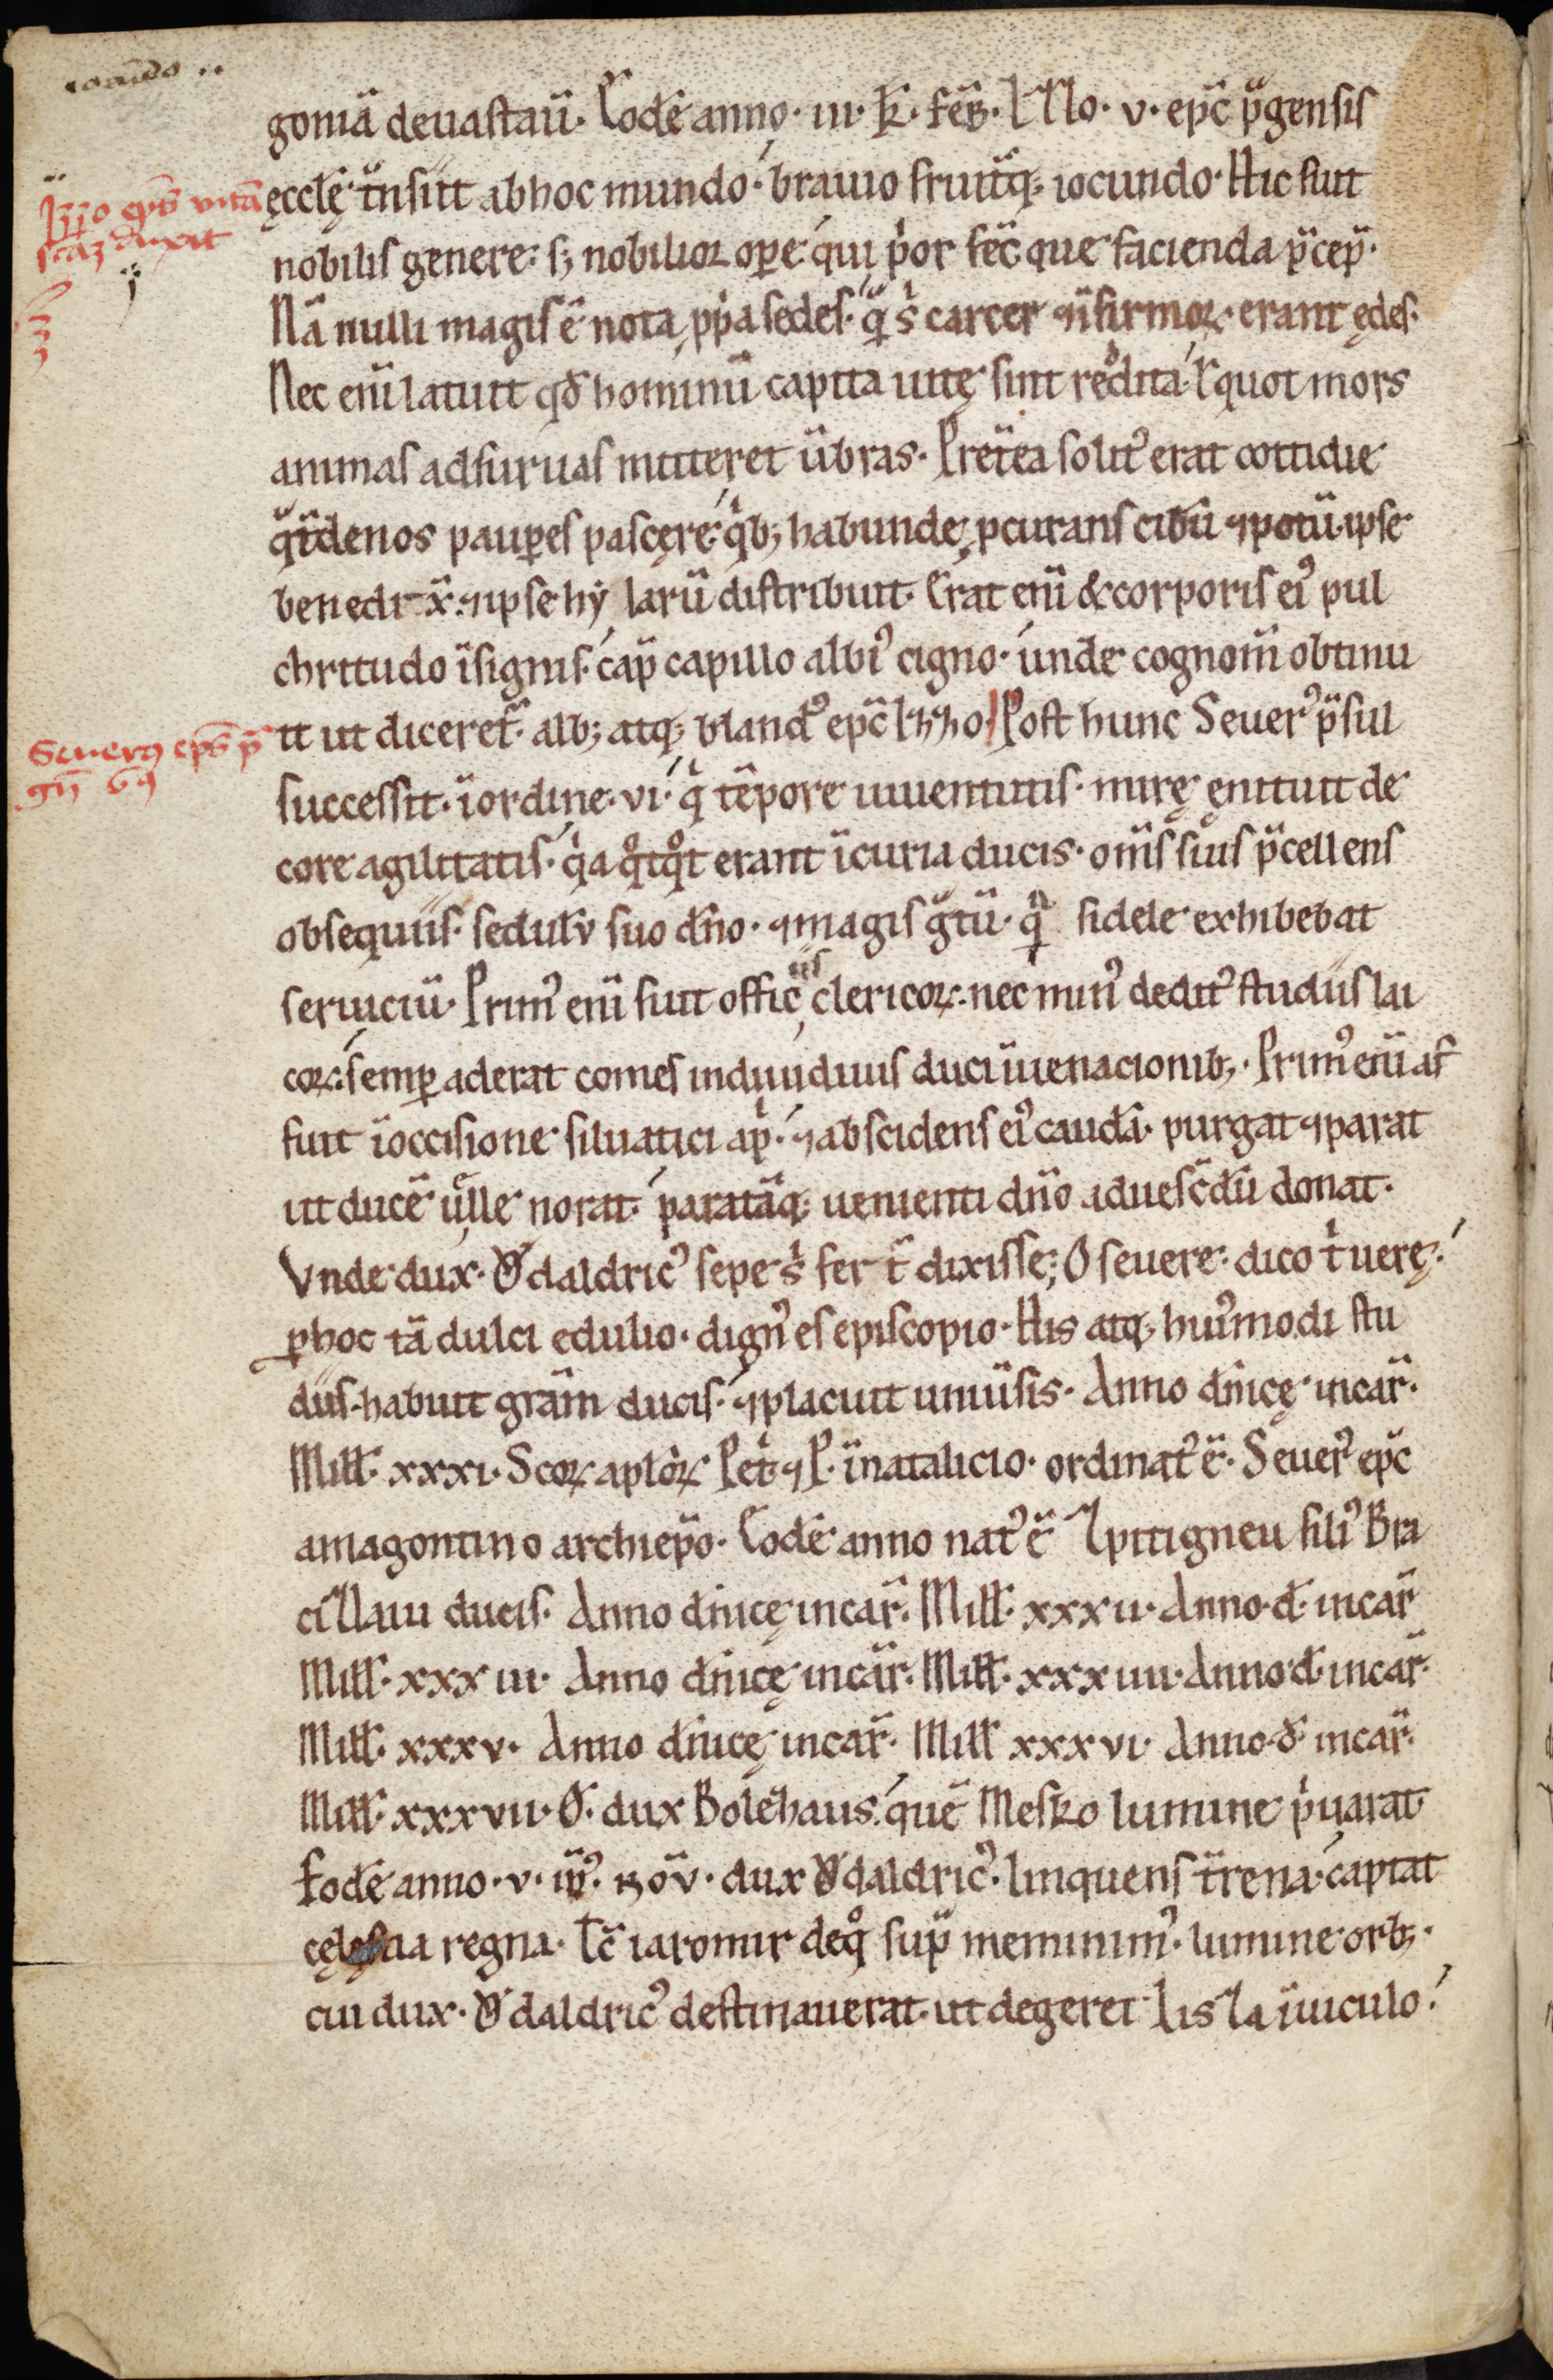 goniā deuastau̅. Eodē anno. iii. k̄. feb̄. IZZo. v. ep̄c p̄gensis
Izzo ep̄s vitā
sc̄aʒ duxit
ęccl̄ę t̄nsiit ab hoc mundo. brauio fruitq; iocundo. Hic fuit
nobilis genere. sʒ nobilior op̄e. qui p̍or fec̄ que facienda p̄cep̄.
Nā nulli magis ē nota, pp̍a sedes. q̄ s̍ carcer ⁊ īfirmoꝝ. erant ędes.
Nec eni̅ latuit qđ hominū capita uitę sint redita. ł quot mors
animas ad furuas mitteret ūbras. Pretea solit᾿ erat cottidie
q̄t̄denos paup̄es pascere. q̍bʒ habunde, pcurans cibū ⁊ potū. ipse
benedixͭ. ⁊ ipse hylarū distribuit. Erat eni̅ & corporis ei᾿ pul
chritudo īsignis. cap̄ capillo albi᾿ cigno. unde cognom̄ obtinu
it ut diceret᷑. alb; atq; bland᾿ ep̄c hyzo. Post hunc Seuer᾿ p̄sul
Seuerꝰ ep̄s p̄
gn̄ 6ꝰ
successit. īordine. vi. q̍ tēpore iuuentutis. mirę ęnituit de
core agilitatis. q̍a q°tq°t erant ī curia ducis. om̄s suis p̄cellens
obsequiis. sedulū suo dn̄o. ⁊ magis gͣtū. qͣ fidele exhibebat
seruiciū. Prim᾿ eni̅ fuit offic̄iis clericoꝝ. nec min᾿ dedit᾿ studiis lai
coꝝ. semp aderat comes indiuiduus duci ī uenacionibʒ. Prim᾿ eni̅ af
fuit ī occisione siluatici ap̍. ⁊ abscidens ei᾿ caudā. purgat ⁊ parat
ut ducē uelle norat. paratāq; uenienti dn̄o ad uescēdū donat.
Vnde dux. Odaldric᾿ sepe s̍ fert᷑ dixisse; O seuere. dico t̍ uerę.
ꝑ hoc tā dulci edulio. dign᾿ es episcopio. His atq; hui᾿modi stu
diis. habuit grām ducis. ⁊ placuit uniūsis. Anno dn̄icę incar̄.
Mill̄. xxxi. Scoꝝ aplōꝝ Pet̍ ⁊ P. ī natalicio. ordinat᾿ ē. Seuer᾿ ep̄c
a magontino archiep̄o. Eodē anno nat᾿ ē Zpitigneu fili᾿ Bra
ciZlaui ducis. Anno dn̄icę incar̄. Mill̄. xxxii. Anno. d̄. incar̄
Mill̄. xxxiii. Anno dn̄icę incar̄. Mill̄. xxxiiii. Anno. d̄. incar̄.
Mill̄. xxxv. Anno dn̄icę incar̄. Mill̄ xxxvi. Anno. d̄. incar̄.
Mill̄. xxxvii. O. dux Bolezhaus. quē Mesko lumine p̍uarat
Eodē anno. v. id᾿. nov̄. dux Odaldric᾿. linquens t̄rena. captat
cęlestia regna. Tc̄ iaromir de q° sup̄ meminim᾿. lumine orb;.
cui dux. Odaldric᾿ destinauerat. ut degeret Lis Za ī uiculo.